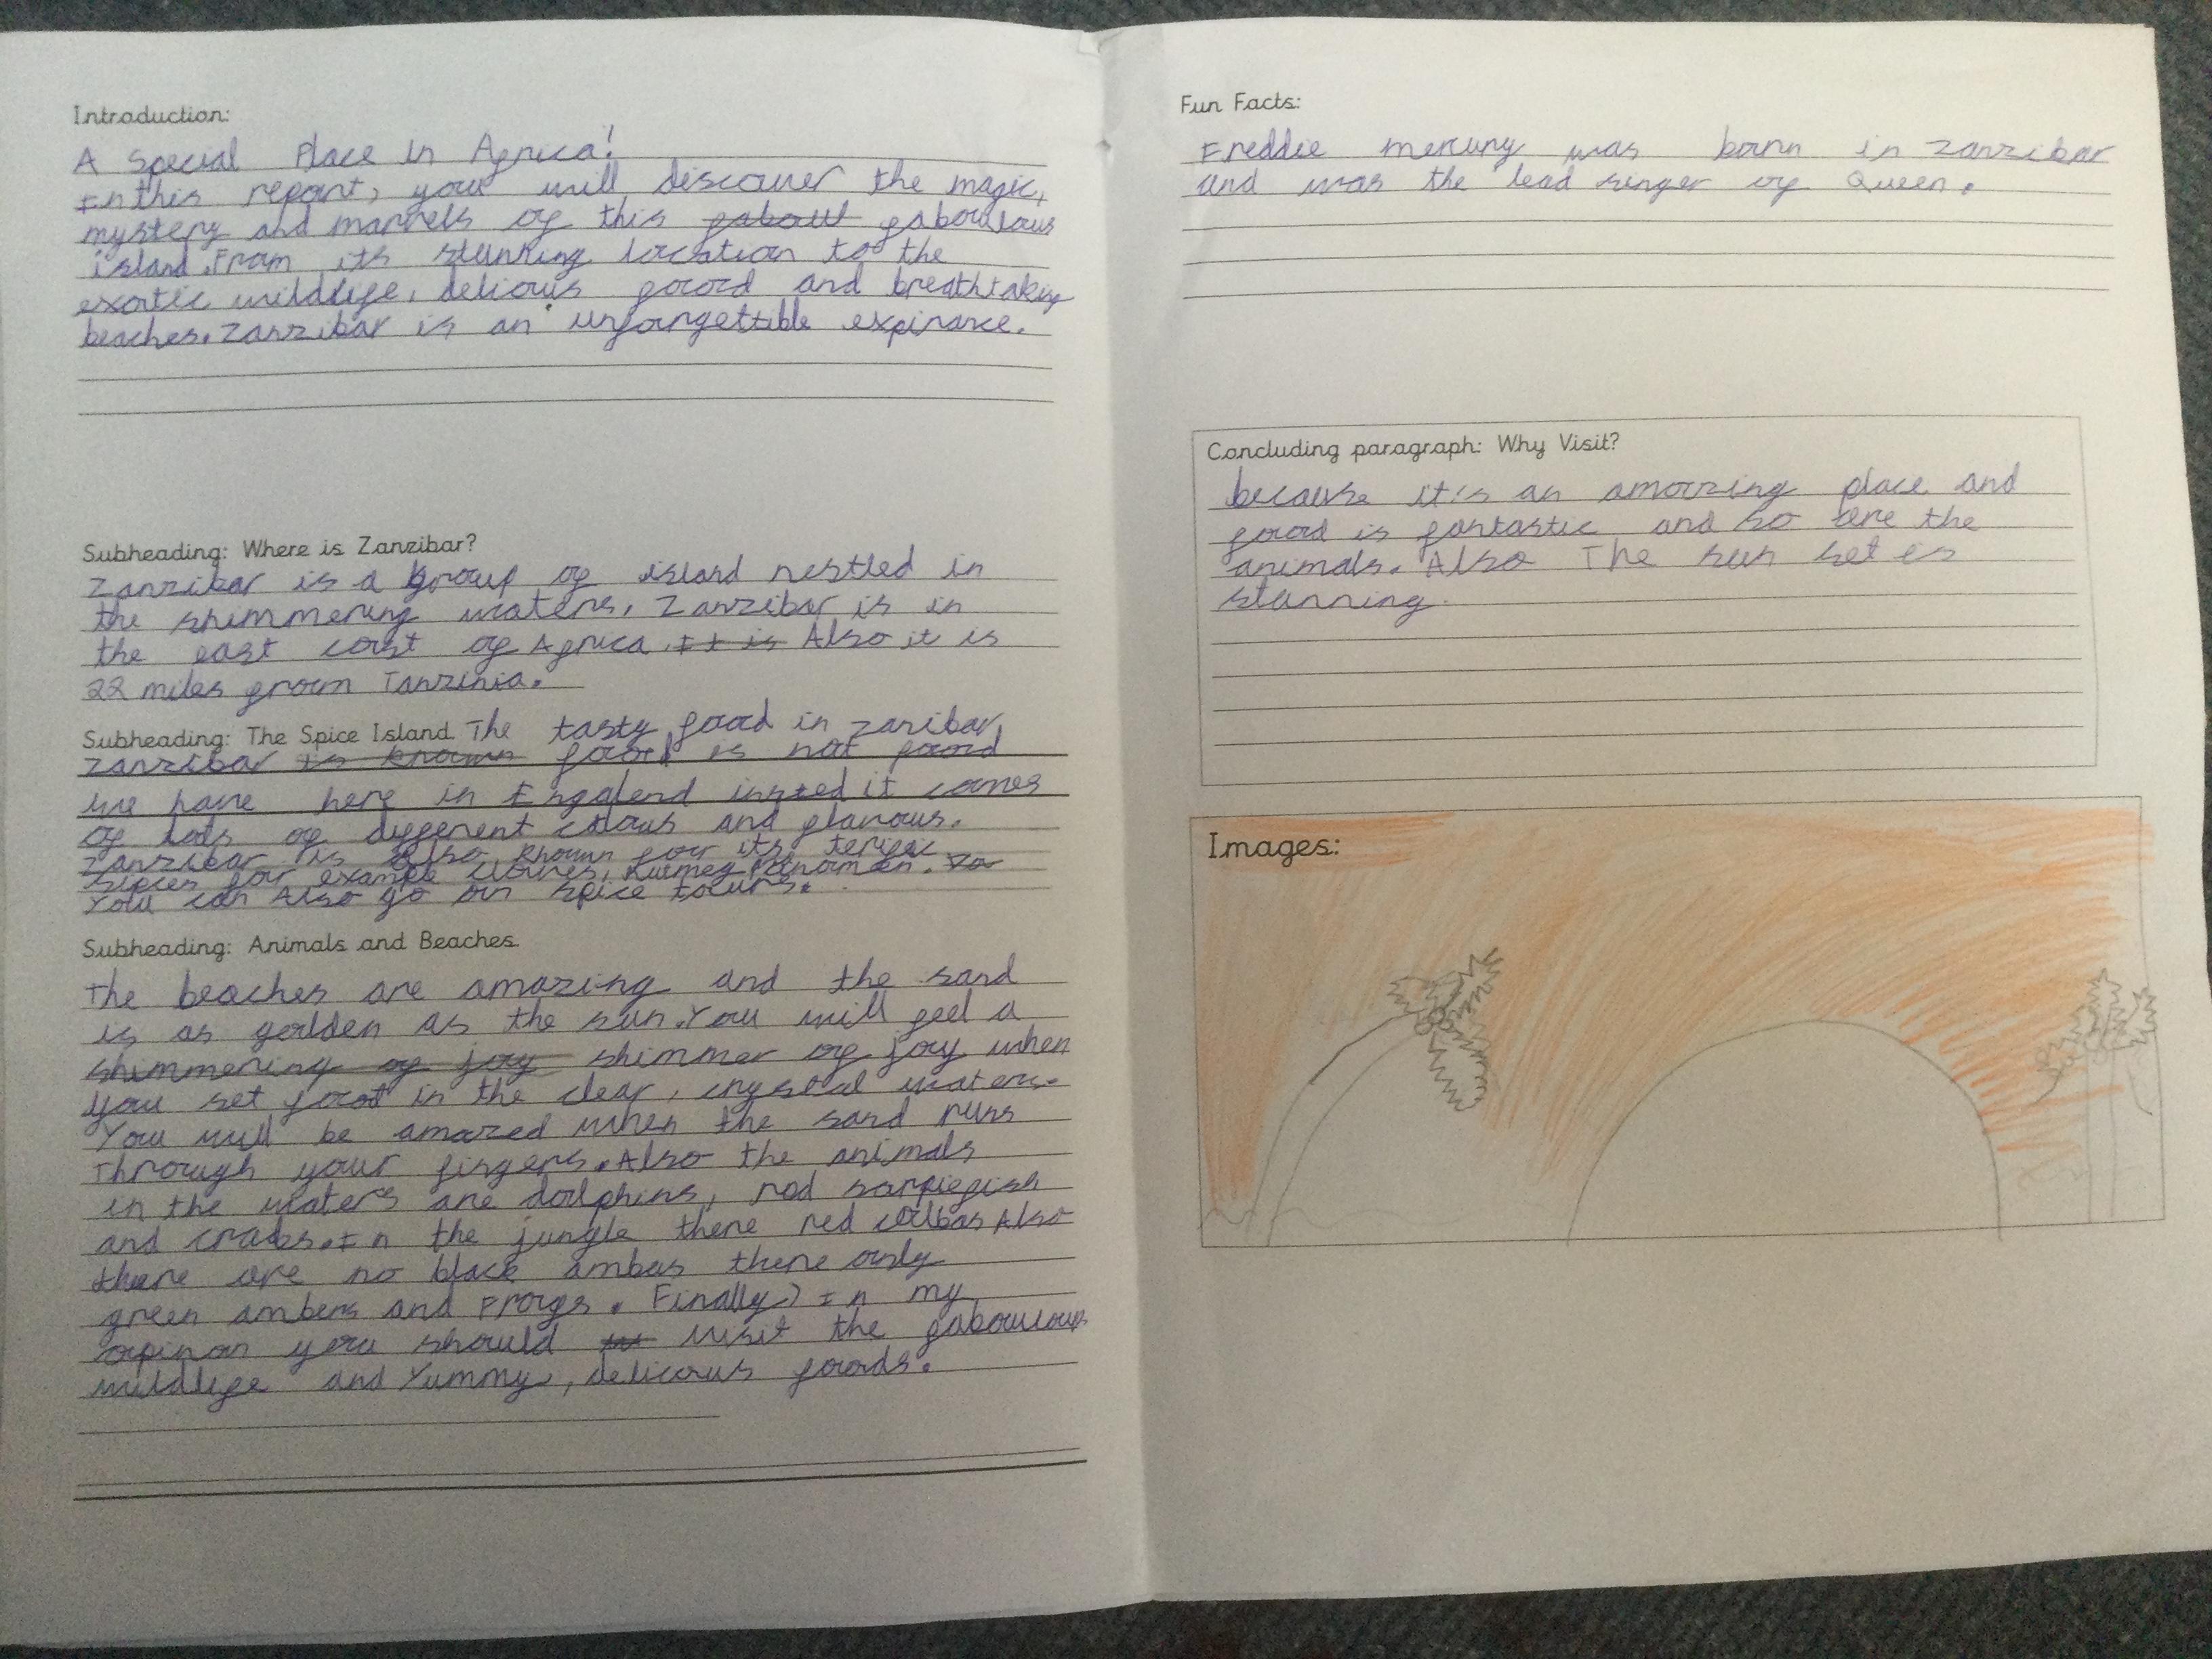 Introduction:
A Special Place in Africa!
In this report, you will discover the magic,
mystery and marvels of this faboul faboulous
island. From its stunning location to the
exotic wildlife, delious food and breathtaking
beaches. Zanzibar is an unforgettible expirance.
Subheading: Where is Zanzibar?
Zanzibar is a group of island nestled in
the shimmering waters, Zanzibar is in
the east coast of Africa. It is Also it is
22 miles from Tanzinia.
Subheading: The Spice Island. The tasty food in zanibar
Zanzibar is known food is not food
we have here in Engalend insted it comes
of lots of different colous and flavous.
Zanzibar is also known for its terific
spices for example cloves, nutmeg . Za
You can Also go on spice tours.
Subheading: Animals and Beaches
The beaches are amazing and the sand
is as golden as the sun. You will feel a
shimmering of joy shimmer of joy when
you set foot in the clear, crystal waters.
You will be amazed when the sand runs
Through your fingers. Also the animals
in the waters are dolphins, rod
and crabs. In the jungle there red Also
there are no black ambas there only
green ambers and Frogs. Finally, In my
opinon you should visit the faboulous
wildlife and Yummy, delicous foods.
Fun Facts:
Freddie mercury was born in zanzibar
and was the lead singer of Queen.
Concluding paragraph: Why Visit?
because it's an amazing place and
food is fantastic and so are the
animals. Also The sun set is
stunning.
Images: